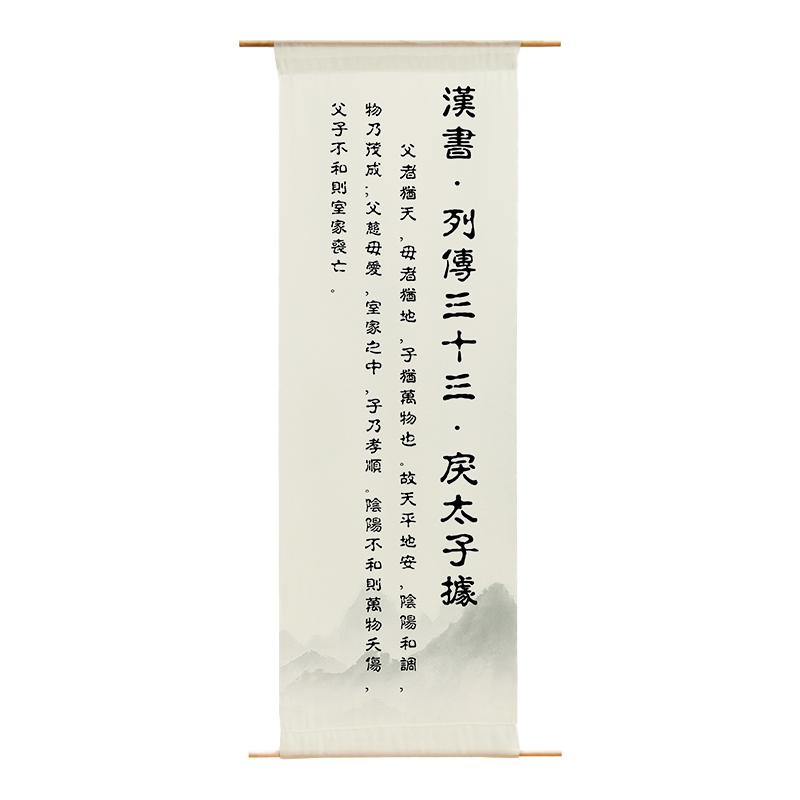 漢書·列傳三十三·戾太子據
父者猶天，母者猶地，子猶萬物也。故天平地安，陰陽和調，
物乃茂成；父慈母愛，室家之中，子乃孝順。陰陽不和則萬物夭傷，
父子不和則室家喪亡。